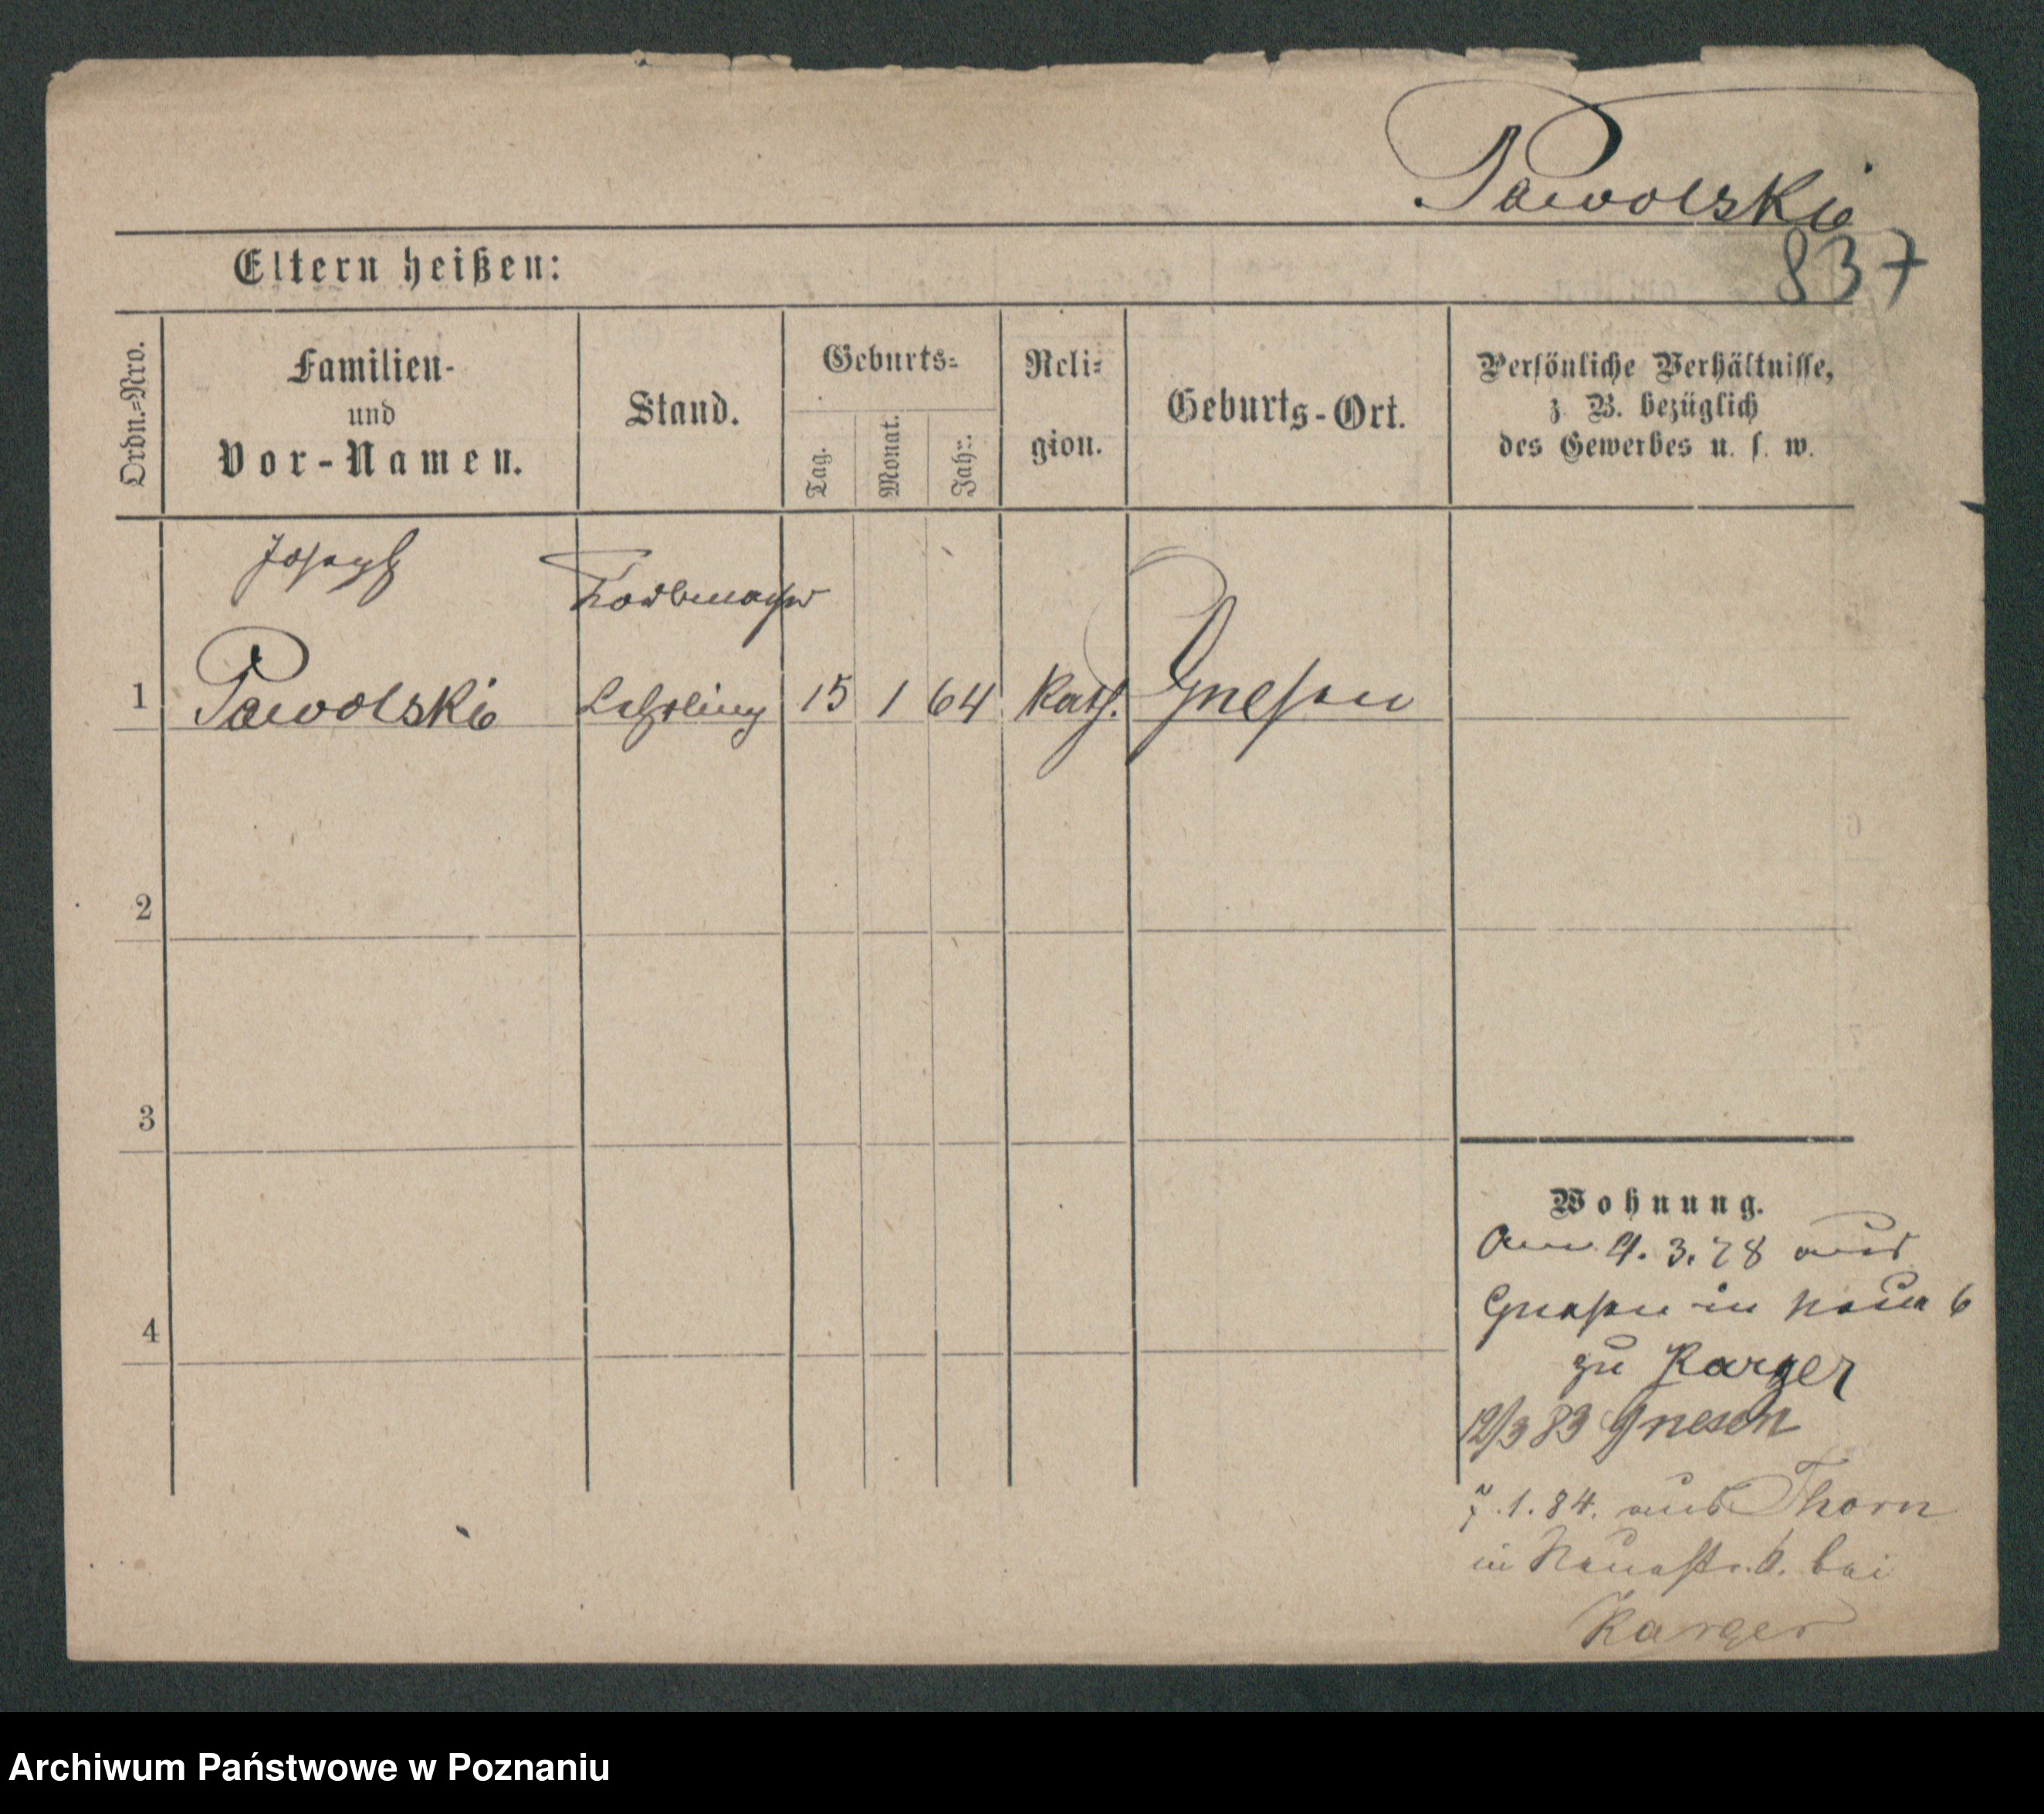 Pawolski
837
Eltern heißen:
Ordn.=Nro.
Familien-
und
Vor-Namen.
Stand.
Geburts=
Tag.
Monat.
Jahr.
Reli=
gion.
Geburts-Ort.
Persönliche Verhältnisse,
z. B. bezüglich
des Gewerbes u. s. w.
1
Joseph
Pawolski
Korbmacher
Lehrling
15 1 64
Kath.
Gnesen
2
3
4
Wohnung.
4. 3. 78 aus
Gnesen in Neue 6
zu Karger
12/3 83 Gnesen
7. 1. 84. aus Thorn
in Neuestr. 6. bei
Karger
Archiwum Państwowe w Poznaniu